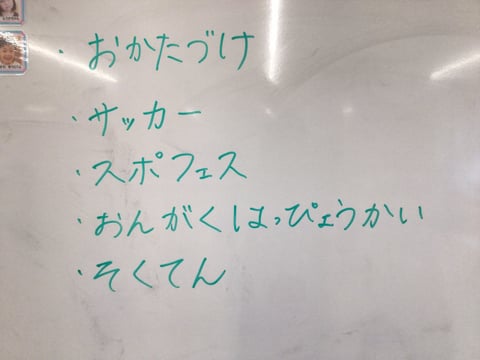 ・おかたづけ
・サッカー
・スポフェス
・おんがくはっぴょうかい
・そくてん